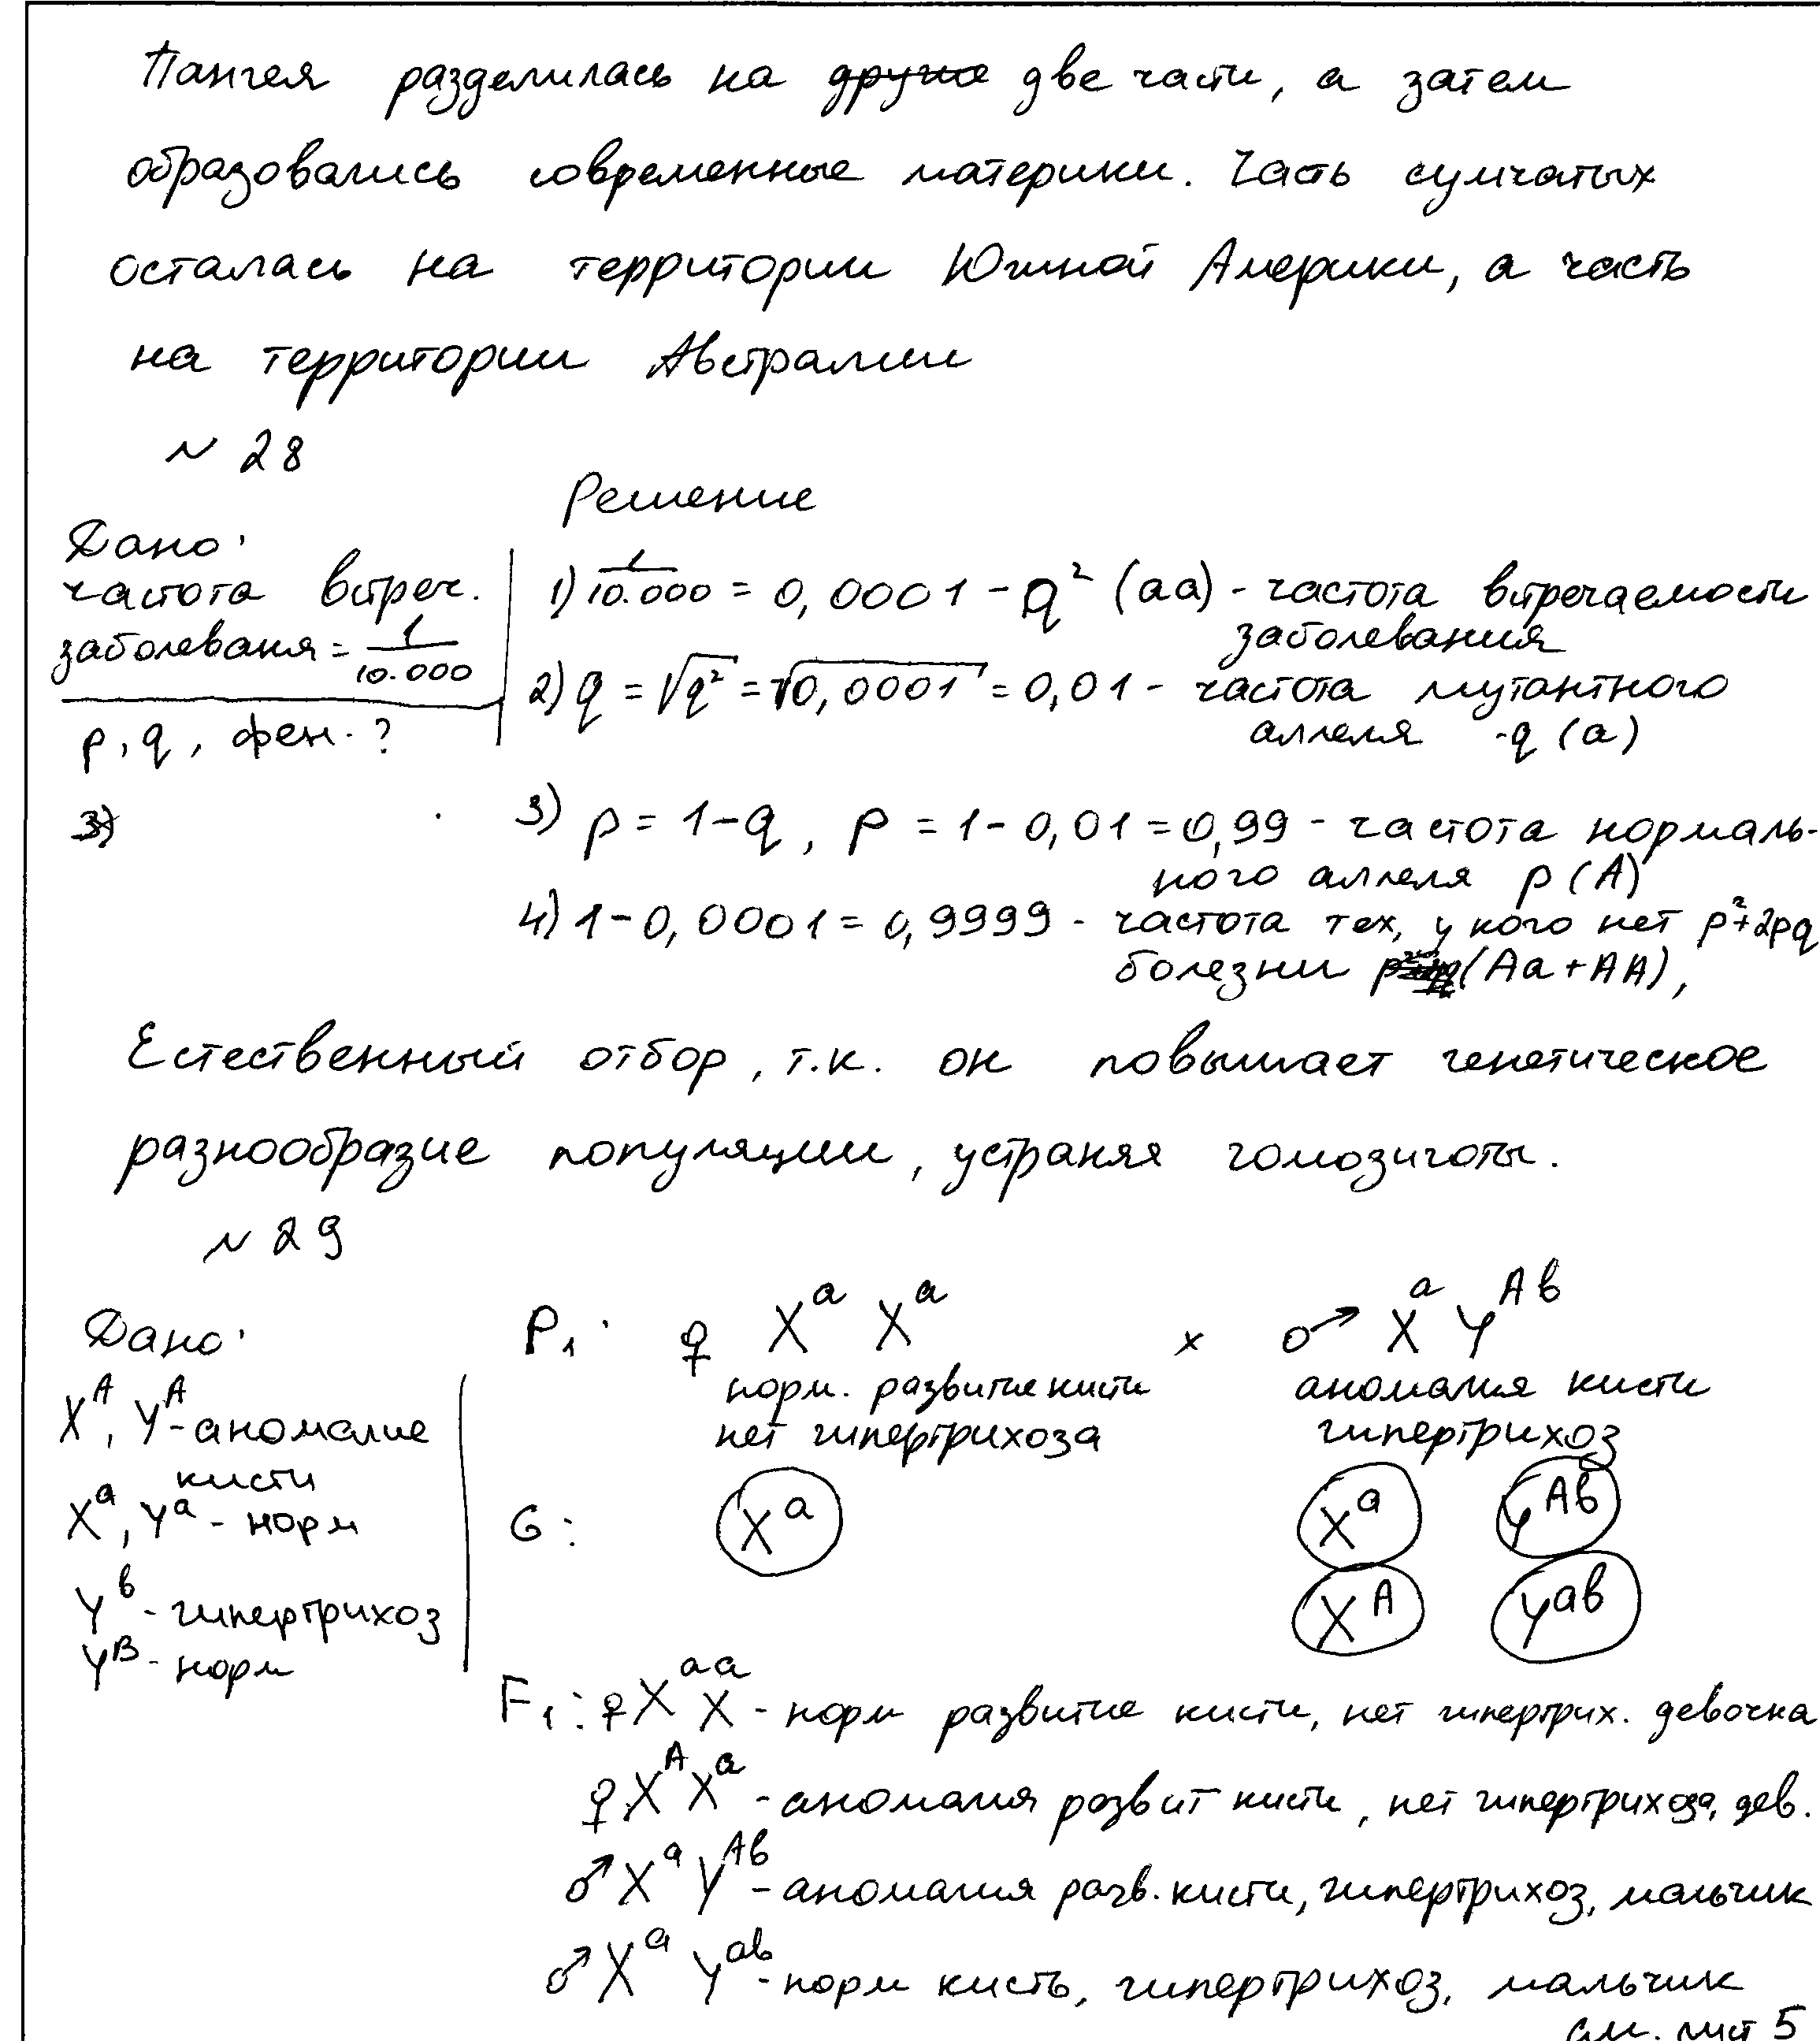 Пангея разделилась на другие две части, а затем
образовались современные материки. Часть сумчатых
осталась на территории Южной Америки, а часть
на территории Австралии
№ 28
Решение
Дано:
частота встреч.
заболеваня = 1/10.000
p, q, фен. ?
1) 1/10.000 = 0,0001 - q² (aa) - частота втречаемости
заболевания
2) q = √q² = √0,0001 = 0,01 - частота мутантного
аллеля - q (a)
3)
3) p = 1-q, p = 1-0,01 = 0,99 - частота нормаль-
ного аллеля p (A)
4) 1-0,0001 = 0,9999 - частота тех, у кого нет p²+2pq
болезни (Aa+AA),
Естественный отбор, т.к. он повышает генетическое
разнообразие популяции, устраняя гомозиготы.
№ 29
Дано:
X^A, Y^A - аномалие
кисти
X^a, Y^a - норм
Y^b - гипертрихоз
Y^B - норм
P₁: ♀ X^a X^a × ♂ X^a Y^Ab
норм. развитие кисти аномалия кисти
нет гипертрихоза гипертрихоз
G: X^a X^a Y^Ab
X^A Y^ab
F₁: ♀ X^a X^a - норм развитие кисти, нет гипертрих. девочка
♀ X^A X^a - аномалия развит кисти, нет гипертрихоза, дев.
♂ X^a Y^Ab - аномалия разв. кисти, гипертрихоз, мальчик
♂ X^a Y^ab - норм кисть, гипертрихоз, мальчик
см. лист 5